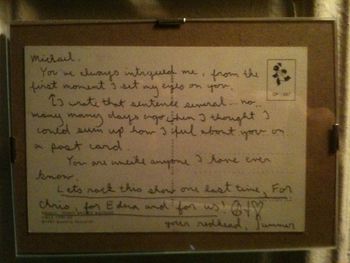 Michael.
You've always intrigued me, from the
first moment I set my eyes on you.
I wrote that sentence several... no..
many many days ago when I thought I
could sum up how I feel about you on
a post card.
You are unlike anyone I have ever
know.
Lets rock this show one last time, For
Chris, for Edna and for us!
your redhead, Summer